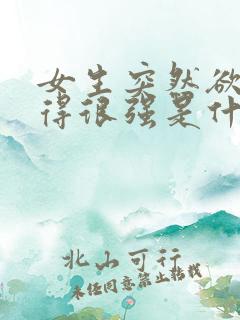 女生突然欲
得很强是什
北山可行
未经同意禁止转载